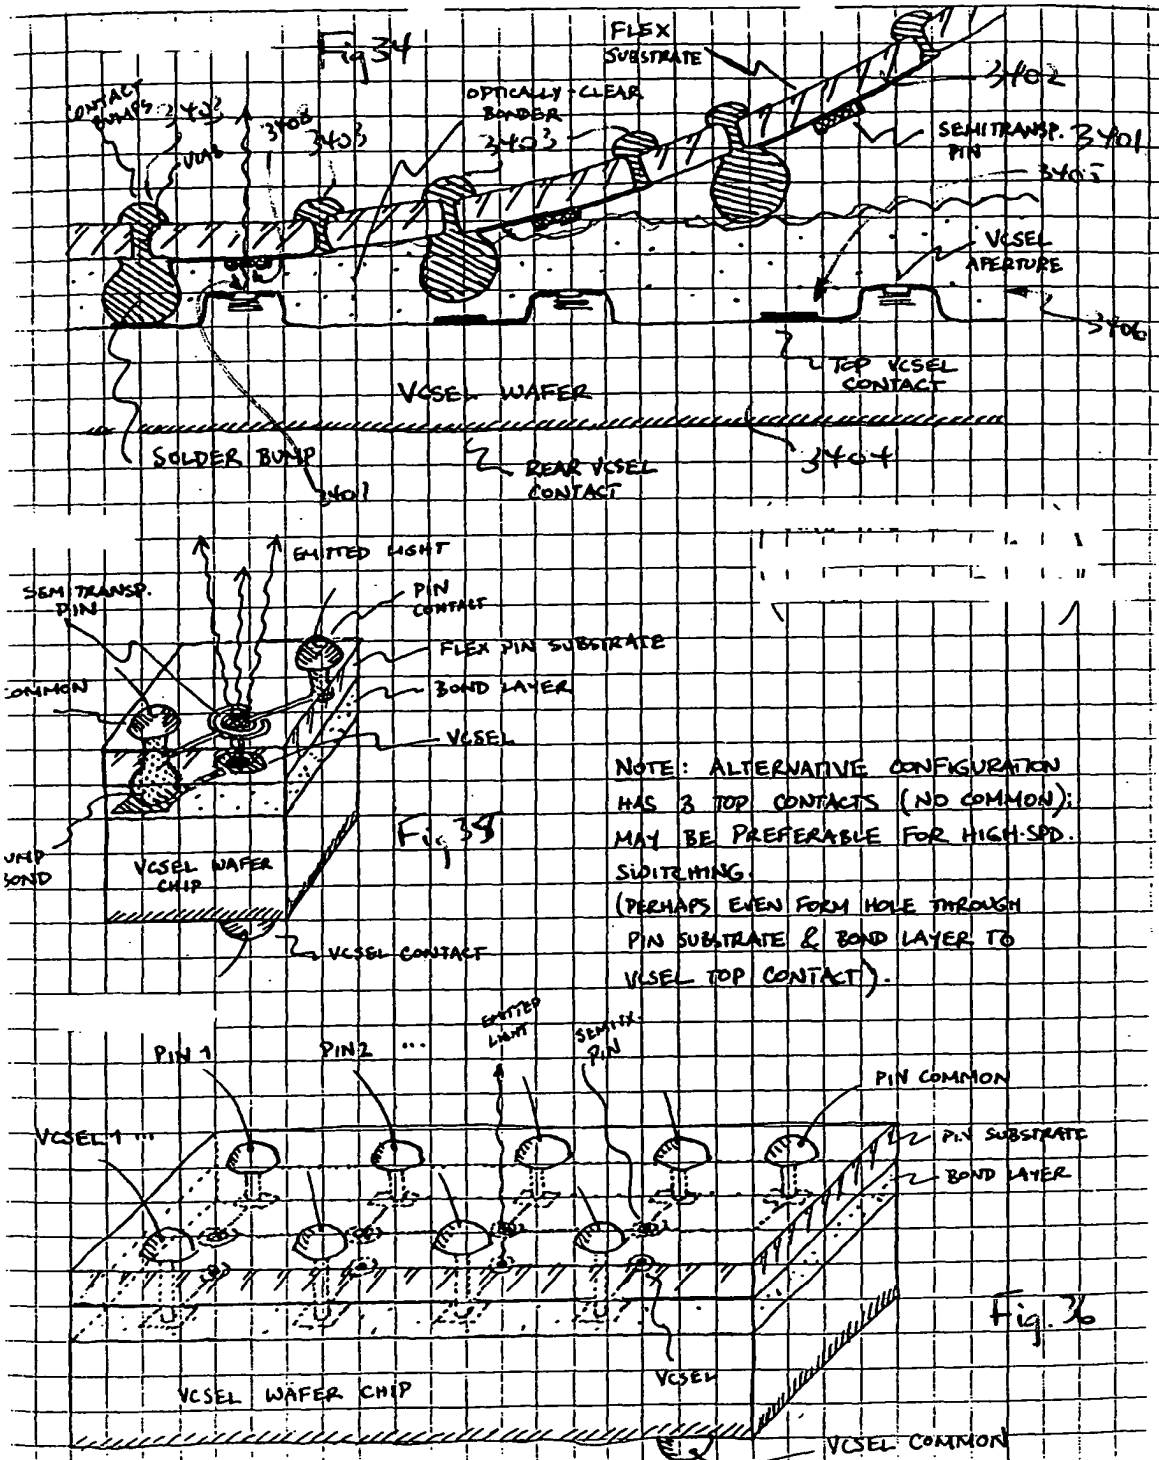 Fig 34
FLEX
SUBSTRATE
3402
CONTACT
BUMPS
3403
VIAS
3408
3403
OPTICALLY-CLEAR
BONDER
3403
SEMITRANSP.
PIN
3401
3405
VCSEL
APERTURE
3406
TOP VCSEL
CONTACT
VCSEL WAFER
SOLDER BUMP
3407
REAR VCSEL
CONTACT
3404
EMITTED LIGHT
SEMITRANSP.
PIN
PIN
CONTACT
FLEX PIN SUBSTRATE
COMMON
BOND LAYER
VCSEL
UMP
BOND
VCSEL WAFER
CHIP
Fig 35
VCSEL CONTACT
NOTE: ALTERNATIVE CONFIGURATION
HAS 3 TOP CONTACTS (NO COMMON);
MAY BE PREFERABLE FOR HIGH-SPD.
SWITCHING.
(PERHAPS EVEN FORM HOLE THROUGH
PIN SUBSTRATE & BOND LAYER TO
VCSEL TOP CONTACT).
EMITTED
LIGHT
SEMITX.
PIN
PIN 1
PIN 2 ...
PIN COMMON
VCSEL 1 ...
PIN SUBSTRATE
BOND LAYER
Fig. 36
VCSEL
VCSEL WAFER CHIP
VCSEL COMMON